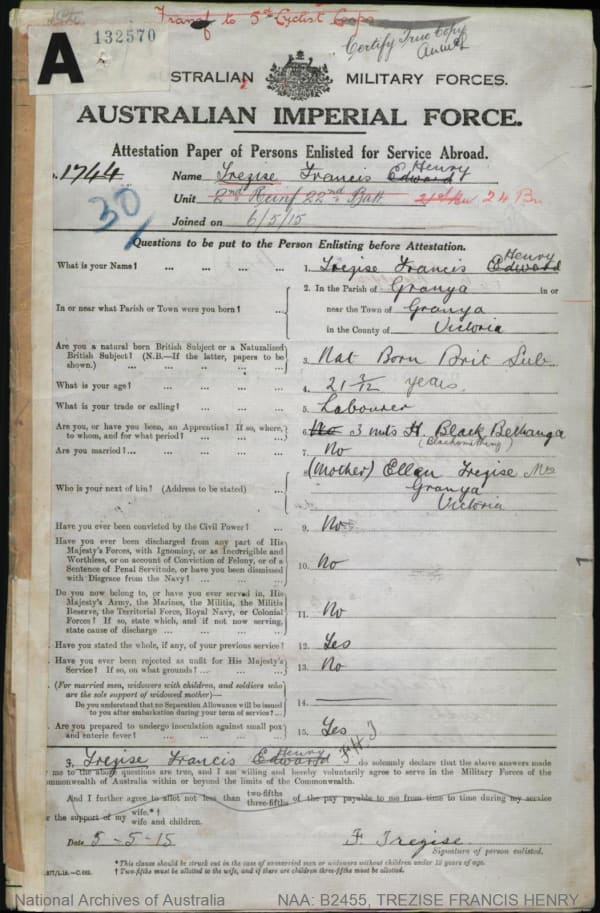 Transf to 5th Cyclist Corps
132570
Certify True Copy
A
AUSTRALIAN MILITARY FORCES.
AUSTRALIAN IMPERIAL FORCE.
Attestation Paper of Persons Enlisted for Service Abroad.
1744 Name Trezise Francis Edward Henry
30 Unit 2nd Reinf 22nd Batt. 24 Bn.
Joined on 6/5/15
Questions to be put to the Person Enlisting before Attestation.
What is your Name? ... ... ... ... 1. Trezise Francis Edward Henry
In or near what Parish or Town were you born? ... 2. In the Parish of Granya in or
near the Town of Granya
in the County of Victoria
Are you a natural born British Subject or a Naturalised
British Subject? (N.B.—If the latter, papers to be
shown.) ... ... ... ... 3. Nat Born Brit Sub.
What is your age? ... ... ... ... 4. 21 3/12 years.
What is your trade or calling? ... ... ... 5. Labourer
Are you, or have you been, an Apprentice? If so, where,
to whom, and for what period? ... ... ... 6. No 3 mnts H. Black Bethanga
(Blacksmithing)
Are you married?... ... ... ... ... 7. No
Who is your next of kin? (Address to be stated) ... 8. (Mother) Ellen Trezise Mrs
Granya
Victoria
Have you ever been convicted by the Civil Power? ... 9. No
Have you ever been discharged from any part of His
Majesty's Forces, with Ignominy, or as Incorrigible and
Worthless, or on account of Conviction of Felony, or of a
Sentence of Penal Servitude, or have you been dismissed
with Disgrace from the Navy? ... ... ... 10. No
Do you now belong to, or have you ever served in, His
Majesty's Army, the Marines, the Militia, the Militia
Reserve, the Territorial Force, Royal Navy, or Colonial
Forces? If so, state which, and if not now serving,
state cause of discharge ... ... ... ... 11. No
Have you stated the whole, if any, of your previous service? 12. Yes
Have you ever been rejected as unfit for His Majesty's
Service? If so, on what grounds? ... ... ... 13. No
(For married men, widowers with children, and soldiers who
are the sole support of widowed mother)—
Do you understand that no Separation Allowance will be issued
to you after embarkation during your term of service? ... 14.
Are you prepared to undergo inoculation against small pox
and enteric fever? ... ... ... ... 15. Yes
F.H.T
I, Trezise Francis Edward Henry do solemnly declare that the above answers made
by me to the above questions are true, and I am willing and hereby voluntarily agree to serve in the Military Forces of the
Commonwealth of Australia within or beyond the limits of the Commonwealth.
And I further agree to allot not less than two-fifths three-fifths of the pay payable to me from time to time during my service
for the support of my wife.*† wife and children.
Date 5-5-15 F. Trezise.
Signature of person enlisted.
*This clause should be struck out in the case of unmarried men or widowers without children under 18 years of age.
† Two-fifths must be allotted to the wife, and if there are children three-fifths must be allotted.
National Archives of Australia NAA: B2455, TREZISE FRANCIS HENRY